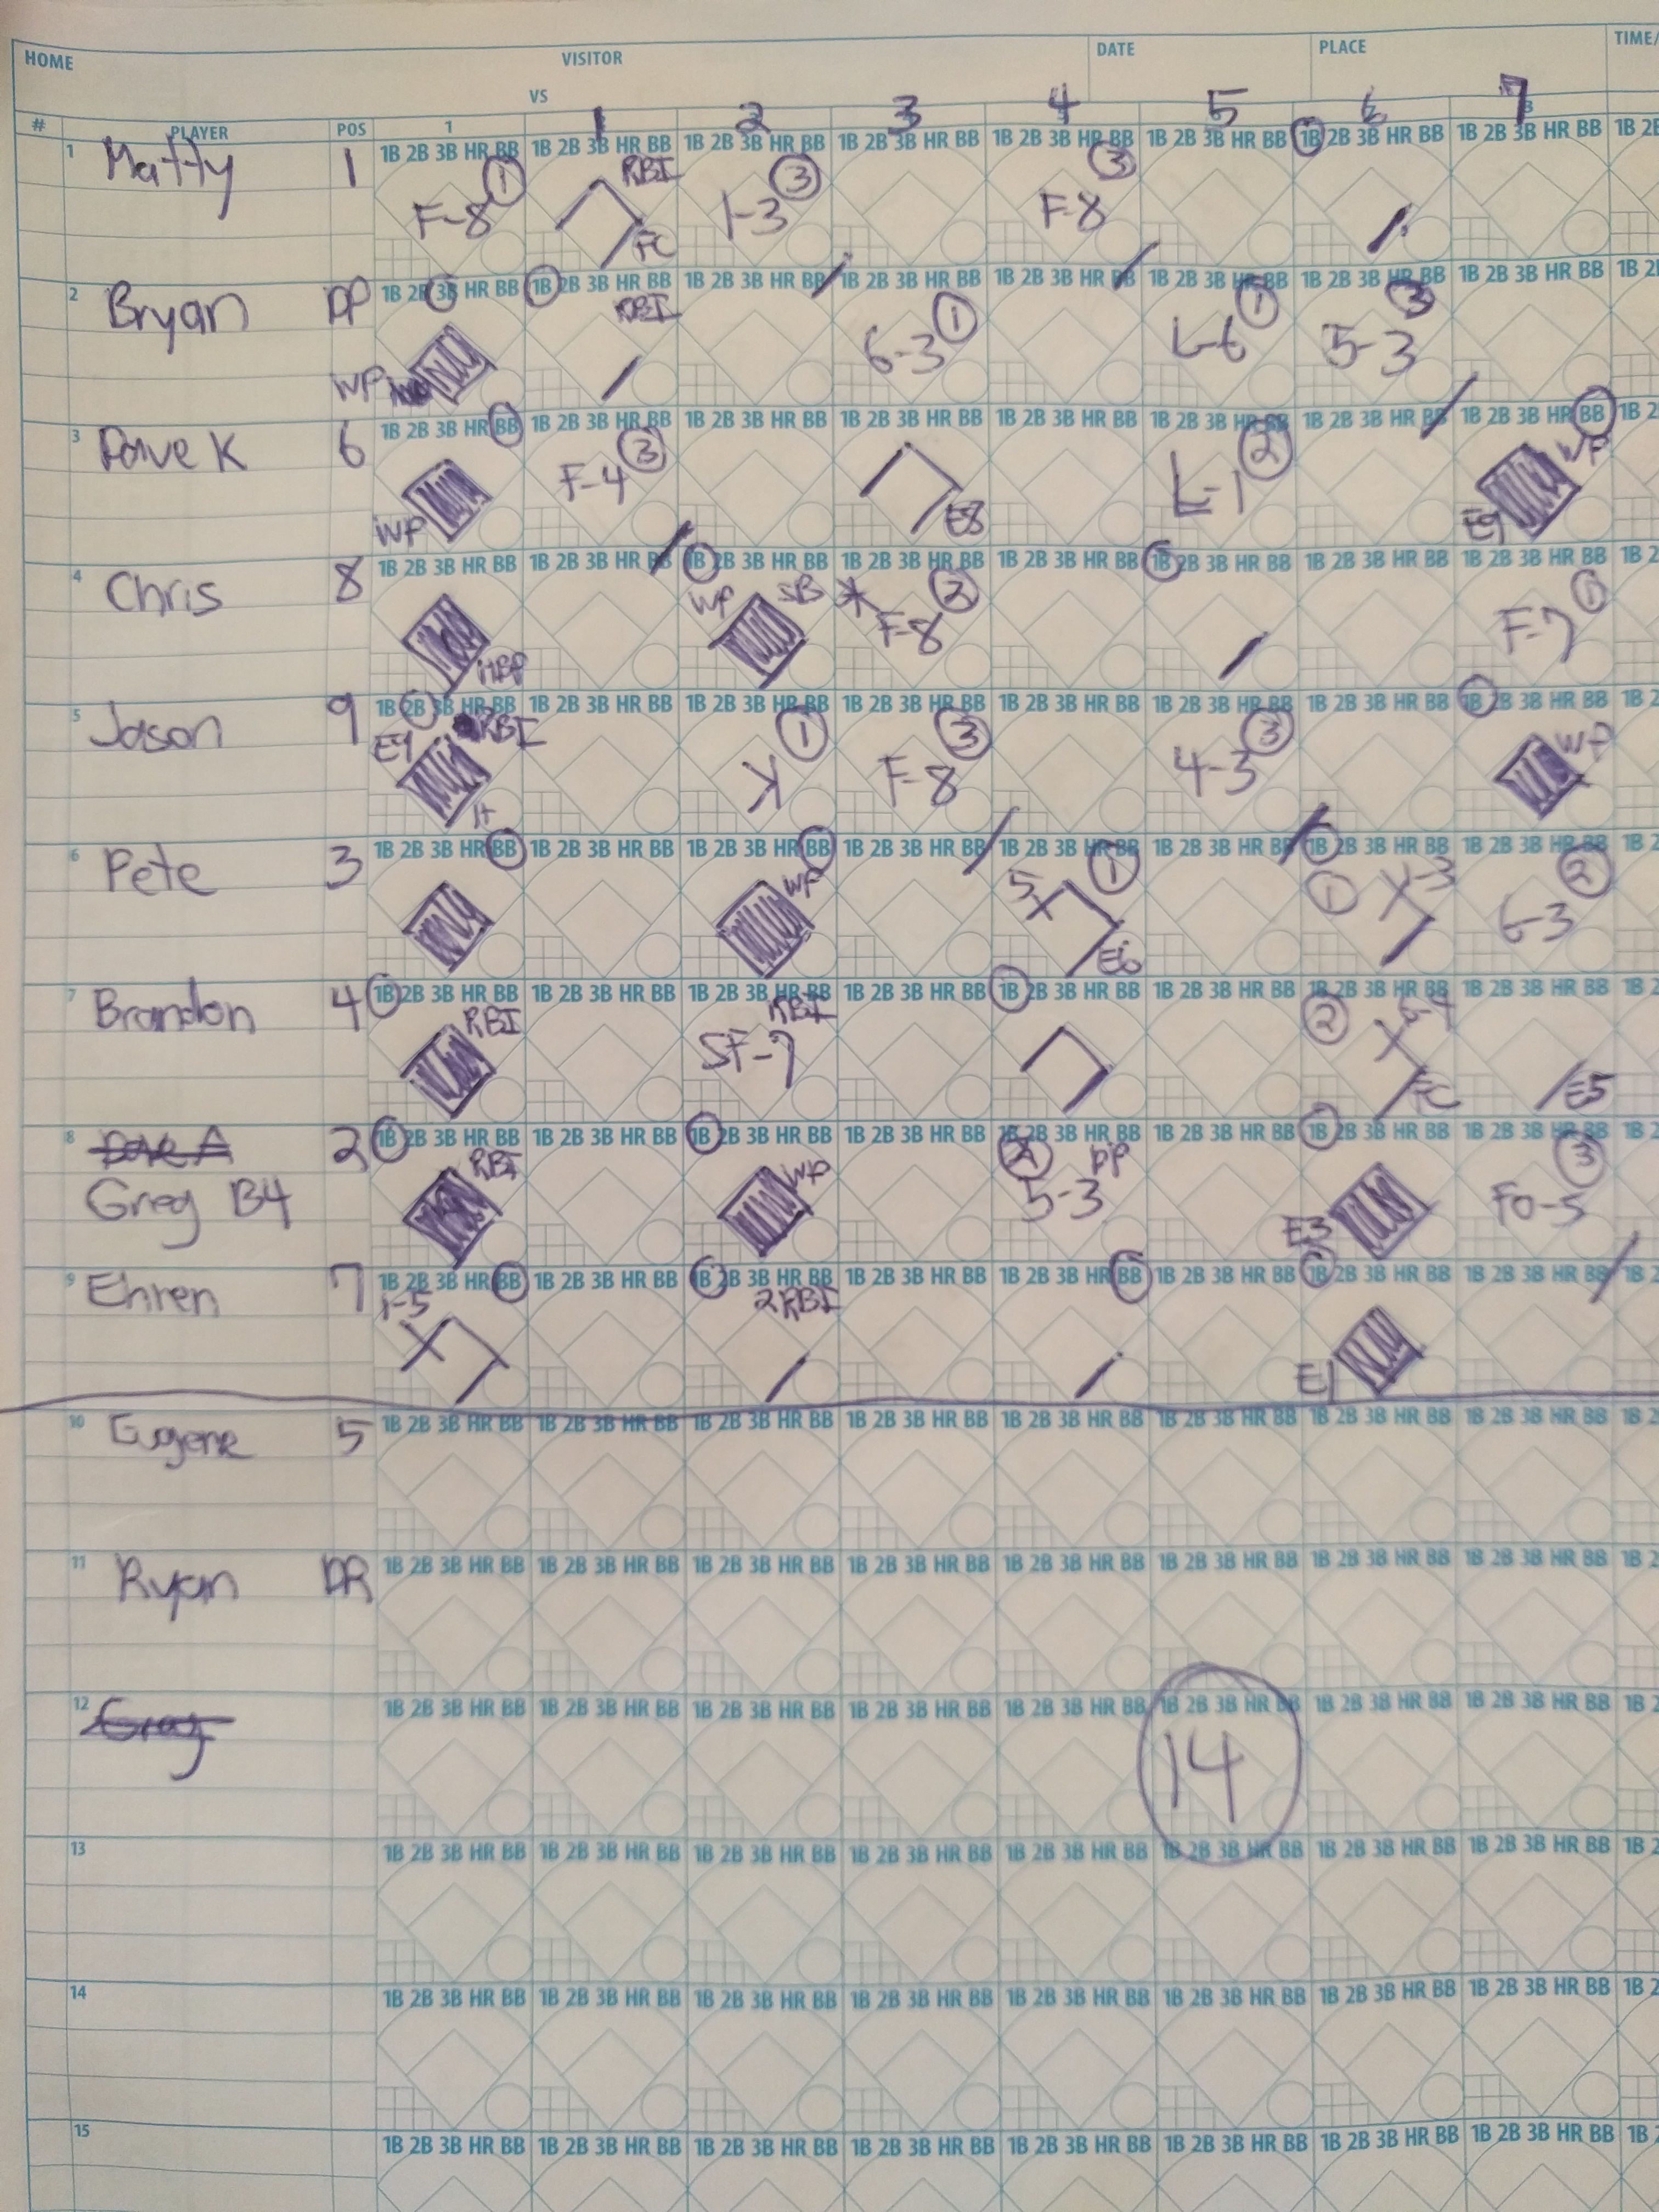 HOME VISITOR DATE PLACE TIME/
VS
1 2 3 4 5 6 7
# PLAYER POS 1
1 Matty 1 1B 2B 3B HR BB 1B 2B 3B HR BB 1B 2B 3B HR BB 1B 2B 3B HR BB 1B 2B 3B HR BB 1B 2B 3B HR BB 1B 2B 3B HR BB 1B 2B 3B HR BB
F-8 1 RBI FC 1-3 3 F-8 3
2 Bryan DP 1B 2B 3B HR BB 1B 2B 3B HR BB 1B 2B 3B HR BB 1B 2B 3B HR BB 1B 2B 3B HR BB 1B 2B 3B HR BB 1B 2B 3B HR BB 1B 2B 3B HR BB
WP RBI 6-3 1 L-6 1 5-3 3
3 Dave K 6 1B 2B 3B HR BB 1B 2B 3B HR BB 1B 2B 3B HR BB 1B 2B 3B HR BB 1B 2B 3B HR BB 1B 2B 3B HR BB 1B 2B 3B HR BB 1B 2B 3B HR BB
WP F-4 3 E8 L-1 2 WP E9
4 Chris 8 1B 2B 3B HR BB 1B 2B 3B HR BB 1B 2B 3B HR BB 1B 2B 3B HR BB 1B 2B 3B HR BB 1B 2B 3B HR BB 1B 2B 3B HR BB 1B 2B 3B HR BB
HBP WP SB * F-8 2 F-7 1
5 Jason 9 1B 2B 3B HR BB 1B 2B 3B HR BB 1B 2B 3B HR BB 1B 2B 3B HR BB 1B 2B 3B HR BB 1B 2B 3B HR BB 1B 2B 3B HR BB 1B 2B 3B HR BB
RBI K 1 F-8 3 4-3 3 WP
6 Pete 3 1B 2B 3B HR BB 1B 2B 3B HR BB 1B 2B 3B HR BB 1B 2B 3B HR BB 1B 2B 3B HR BB 1B 2B 3B HR BB 1B 2B 3B HR BB 1B 2B 3B HR BB
WP 5 1 E6 1 1-3 6-3 2
7 Brandon 4 1B 2B 3B HR BB 1B 2B 3B HR BB 1B 2B 3B HR BB 1B 2B 3B HR BB 1B 2B 3B HR BB 1B 2B 3B HR BB 1B 2B 3B HR BB 1B 2B 3B HR BB
RBI SF-7 RBI 2 6-4 FC E5
8 Dave A 2 1B 2B 3B HR BB 1B 2B 3B HR BB 1B 2B 3B HR BB 1B 2B 3B HR BB 1B 2B 3B HR BB 1B 2B 3B HR BB 1B 2B 3B HR BB 1B 2B 3B HR BB
Greg B4 RBI WP 2 DP 5-3 E3 FO-5 3
9 Ehren 7 1B 2B 3B HR BB 1B 2B 3B HR BB 1B 2B 3B HR BB 1B 2B 3B HR BB 1B 2B 3B HR BB 1B 2B 3B HR BB 1B 2B 3B HR BB 1B 2B 3B HR BB
1-5 2RBI E1
10 Eugene 5 1B 2B 3B HR BB 1B 2B 3B HR BB 1B 2B 3B HR BB 1B 2B 3B HR BB 1B 2B 3B HR BB 1B 2B 3B HR BB 1B 2B 3B HR BB 1B 2B 3B HR BB
11 Ryan DR 1B 2B 3B HR BB 1B 2B 3B HR BB 1B 2B 3B HR BB 1B 2B 3B HR BB 1B 2B 3B HR BB 1B 2B 3B HR BB 1B 2B 3B HR BB 1B 2B 3B HR BB
12 Greg 1B 2B 3B HR BB 1B 2B 3B HR BB 1B 2B 3B HR BB 1B 2B 3B HR BB 1B 2B 3B HR BB 1B 2B 3B HR BB 1B 2B 3B HR BB 1B 2B 3B HR BB
14
13 1B 2B 3B HR BB 1B 2B 3B HR BB 1B 2B 3B HR BB 1B 2B 3B HR BB 1B 2B 3B HR BB 1B 2B 3B HR BB 1B 2B 3B HR BB 1B 2B 3B HR BB
14 1B 2B 3B HR BB 1B 2B 3B HR BB 1B 2B 3B HR BB 1B 2B 3B HR BB 1B 2B 3B HR BB 1B 2B 3B HR BB 1B 2B 3B HR BB 1B 2B 3B HR BB
15 1B 2B 3B HR BB 1B 2B 3B HR BB 1B 2B 3B HR BB 1B 2B 3B HR BB 1B 2B 3B HR BB 1B 2B 3B HR BB 1B 2B 3B HR BB 1B 2B 3B HR BB